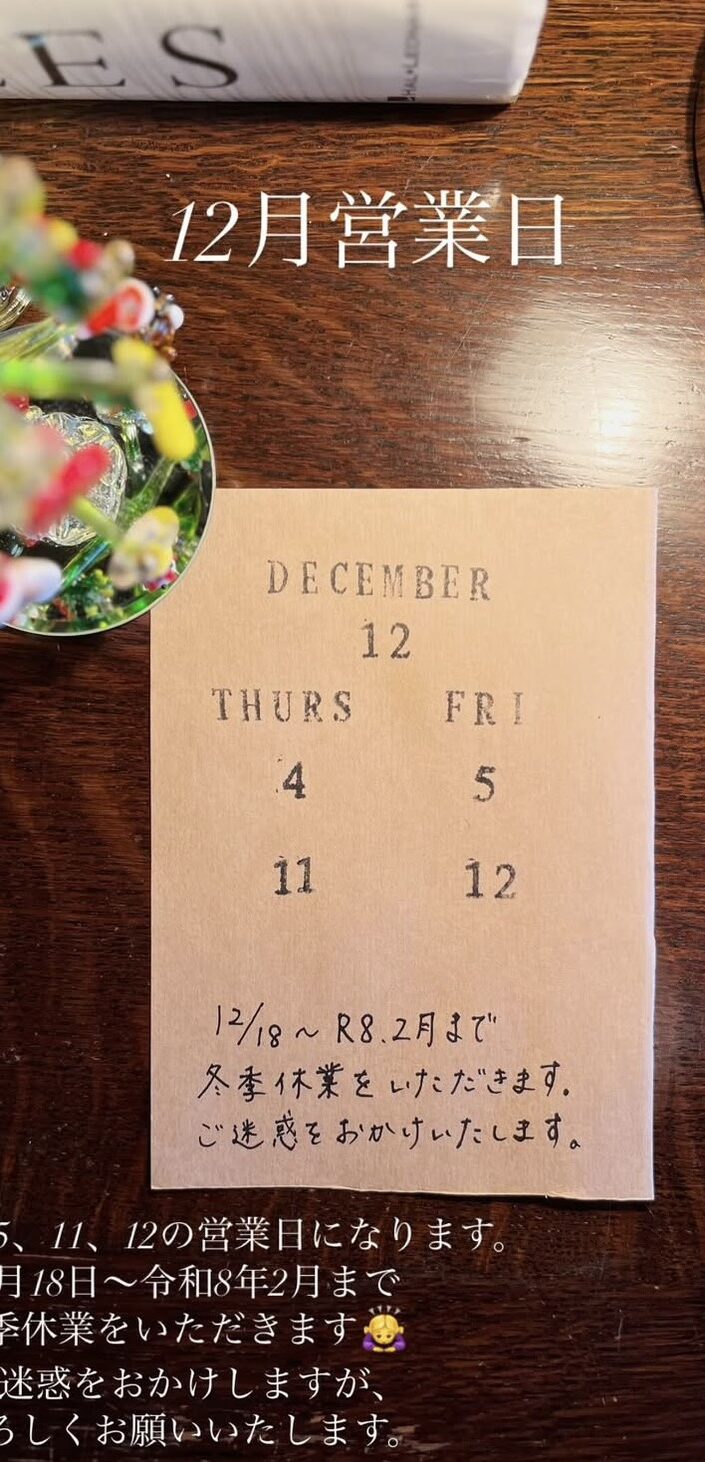 ES
HAL•LEONARD
12月営業日
DECEMBER
12
THURS FRI
4 5
11 12
12/18～R8.2月まで
冬季休業をいただきます。
ご迷惑をおかけいたします。
5、11、12の営業日になります。
月18日～令和8年2月まで
季休業をいただきます🙇
迷惑をおかけしますが、
ろしくお願いいたします。